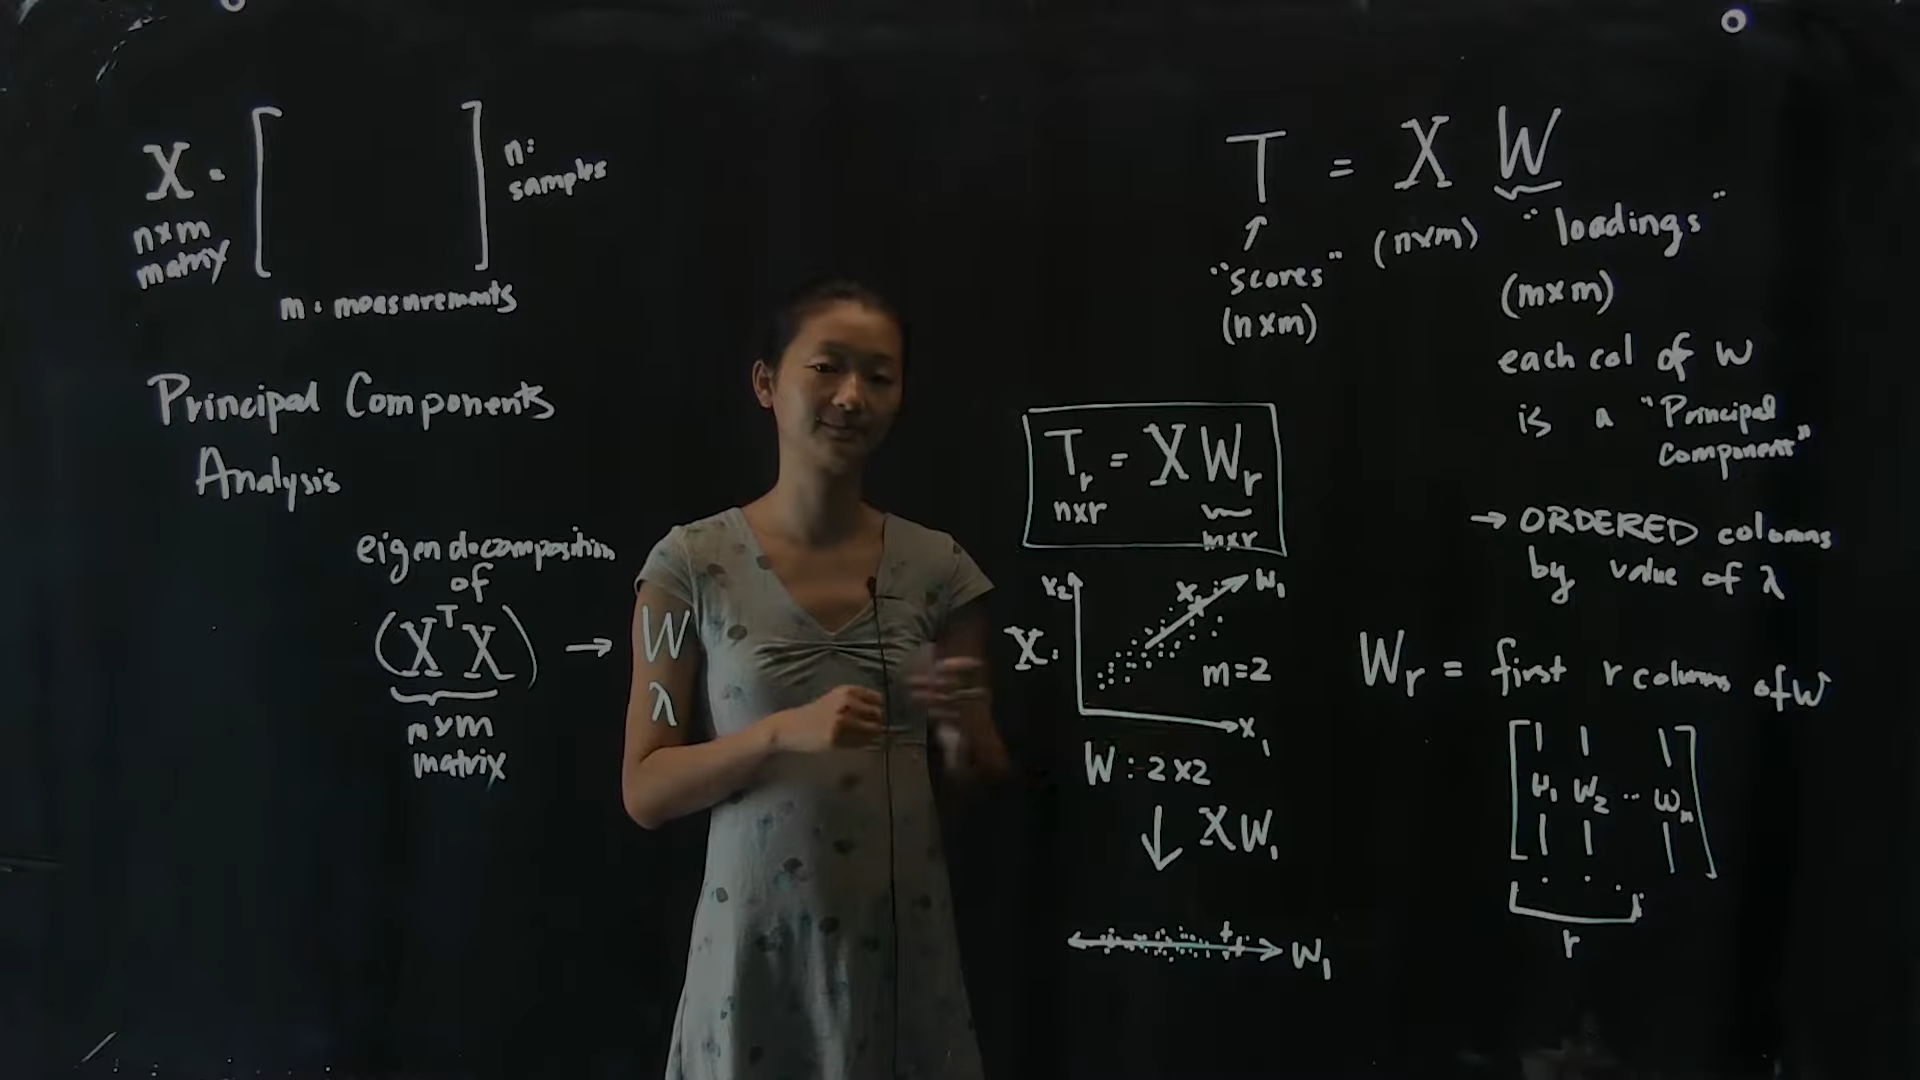 X =
n×m
matrix
n:
samples
m: measurements
Principal Components
Analysis
eigen decomposition
of
(XᵀX) → W
λ
m×m
matrix
T = X W
"scores"
(n×m)
(n×m)
"loadings"
(m×m)
each col of W
is a "Principal
Component"
→ ORDERED columns
by value of λ
Tᵣ = X Wᵣ
n×r
m×r
X:
x₂
x₁
w₁
m=2
W: 2×2
↓ XW₁
w₁
Wᵣ = first r columns of W
w₁ w₂ ...
r